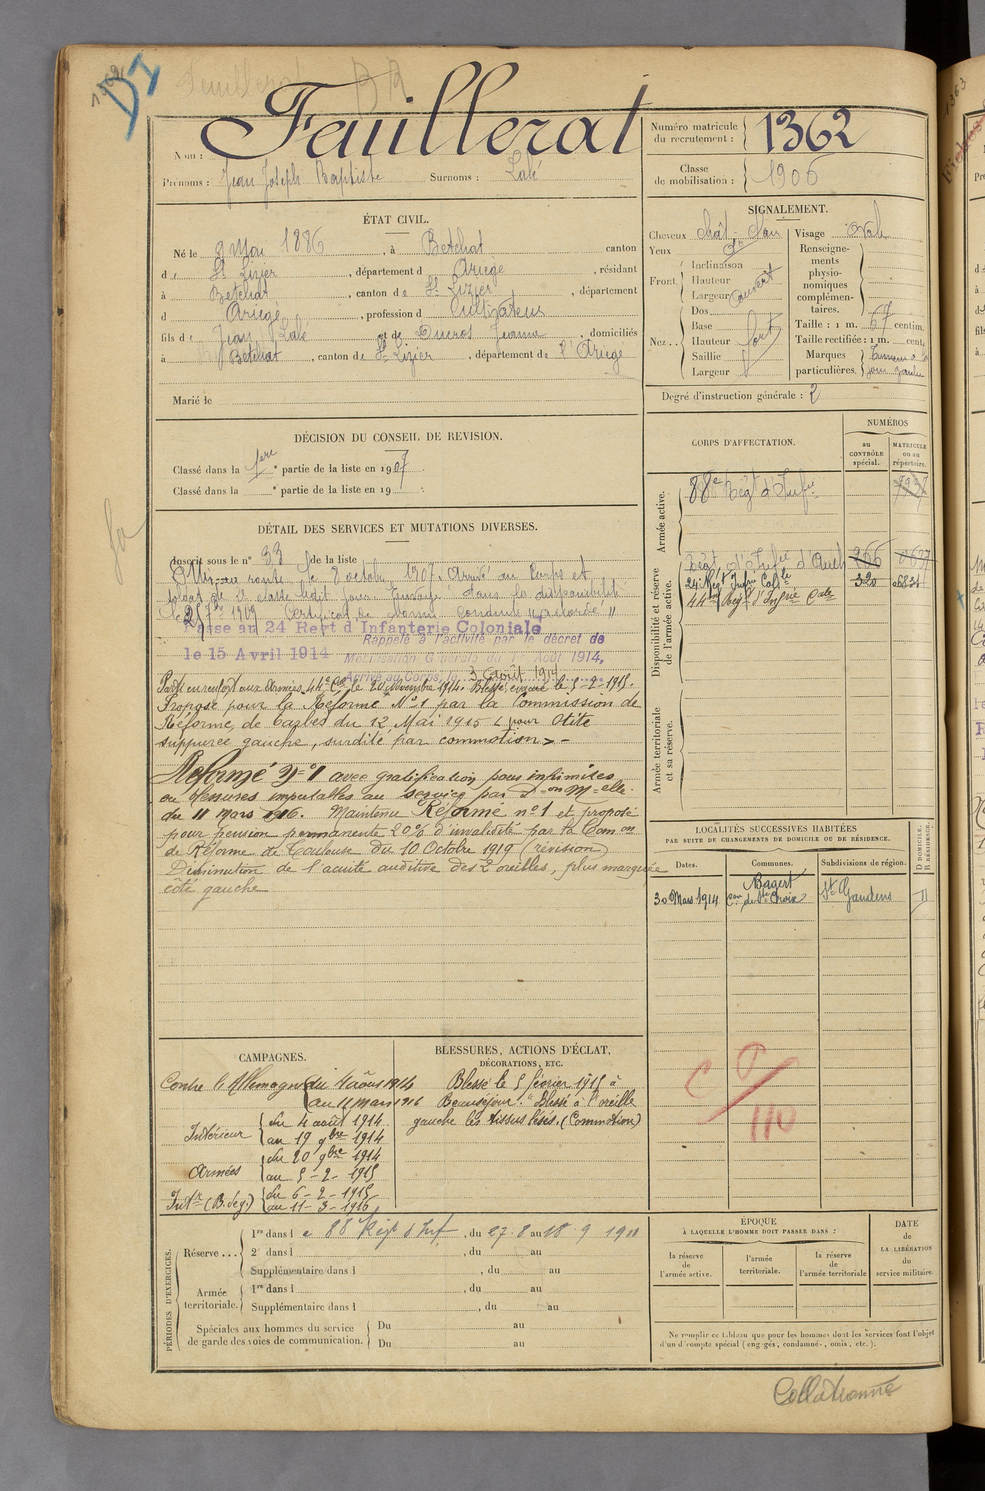 Feuillerat
Nom :
Prénoms : Jean Joseph Baptiste Surnoms : Lalé
Numéro matricule du recrutement : 1362
Classe de mobilisation : 1906
ÉTAT CIVIL.
Né le 9 Mai 1886, à Betchat canton
de St Lizier, département d Ariège, résidant
à Betchat, canton de St Lizier, département
d Ariège, profession d Cultivateur
fils de Jean Lalé et de Ducros Jeanne, domiciliés
à Betchat, canton de St Lizier, département de l'Ariège
Marié le
SIGNALEMENT.
Cheveux chât. Noir
Yeux
Front Inclinaison
Hauteur
Largeur couvert
Nez Dos
Base
Hauteur fort
Saillie
Largeur
Visage Ovale
Renseignements physionomiques complémentaires.
Taille : 1 m. 67 centim.
Taille rectifiée : 1 m. cent.
Marques particulières.
Degré d'instruction générale : 2
DÉCISION DU CONSEIL DE REVISION.
Classé dans la 1ere partie de la liste en 1907
Classé dans la partie de la liste en 19
CORPS D'AFFECTATION.
NUMÉROS
au CONTRÔLE spécial.
MATRICULE ou au répertoire.
Armée active.
88e Régt d'Infie
Disponibilité et réserve de l'armée active.
Régt d'Infie d'Auch 266
24e Régt Infie Colle 320 06834
44e Régt d'Infie Cale
Armée territoriale et sa réserve.
DÉTAIL DES SERVICES ET MUTATIONS DIVERSES.
Inscrit sous le n° 33 de la liste
en route le 8 octobre 1907. Arrivé au Corps et
soldat de 2e classe ledit jour. Envoyé dans la disponibilité
le 25 7bre 1909 Certificat de bonne conduite "accordé"
Passé au 24 Regt d'Infanterie Coloniale
le 15 Avril 1914
Rappelé à l'activité par le décret de
Mobilisation Générale du 1er Août 1914,
Arrivé au Corps, le 3 Août 1914
Parti en renfort aux Armées 44e Cal le 20 Novembre 1914. Blessé, évacué le 5-2-1915.
Proposé pour la Réforme N°1 par la Commission de
Réforme, de Tarbes du 12 Mai 1915 « pour Otite
suppurée gauche, surdité par commotion » -
Réformé N°1 avec gratification pour infirmités
ou blessures imputables au service par Don Melle
du 11 Mars 1916. Maintenu Réformé n°1 et proposé
pour pension permanente 20% d'invalidité par la Comon
de Réforme de Toulouse du 10 Octobre 1919 (révision)
Diminution de l'acuité auditive des 2 oreilles, plus marquée
côté gauche
LOCALITÉS SUCCESSIVES HABITÉES
PAR SUITE DE CHANGEMENTS DE DOMICILE OU DE RÉSIDENCE.
Dates. Communes. Subdivisions de région.
D DOMICILE. R RÉSIDENCE.
30 Mars 1914 Bagert con de Ste Croix St Gaudens D
CAMPAGNES.
Contre l'Allemagne du 4 août 1914
au 11 mars 1916
Intérieur du 4 août 1914
au 19 9bre 1914
Armées du 20 9bre 1914
au 5-2-1915
Intr (B. deg.) du 6-2-1915
au 11-3-1916
BLESSURES, ACTIONS D'ÉCLAT,
DÉCORATIONS, ETC.
Blessé le 5 février 1915 à
Beauséjour. "Blessé à l'oreille
gauche les tissus lésés. (Commotion)
110
PÉRIODES D'EXERCICES.
Réserve... 1re dans le 88 Régt d'Inf, du 27.8 au 18 9 1911
2e dans l , du au
Supplémentaire dans l , du au
Armée territoriale. 1re dans l , du au
Supplémentaire dans l , du au
Spéciales aux hommes du service de garde des voies de communication. Du au
Du au
ÉPOQUE
À LAQUELLE L'HOMME DOIT PASSER DANS :
la réserve de l'armée active.
l'armée territoriale.
la réserve de l'armée territoriale
DATE DE LA LIBÉRATION du service militaire.
Ne remplir ce tableau que pour les hommes dont les services font l'objet
d'un décompte spécial (engagés, condamnés, omis, etc.).
Collationné